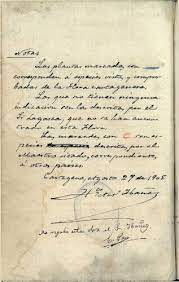 Notas
Las plantas marcadas con
corresponden a especies vistas y compro-
badas de la Flora cartagenera.
Las que no tienen ninguna
indicación son las descritas por el
Sr. Lagasca, que no se han encon-
trado en esta Flora.
Las marcadas con C son es-
pecies descritas por el
Maestro citado, correspondientes
á otros países.
Cartagena, agosto 27 de 1905
Ibáñez